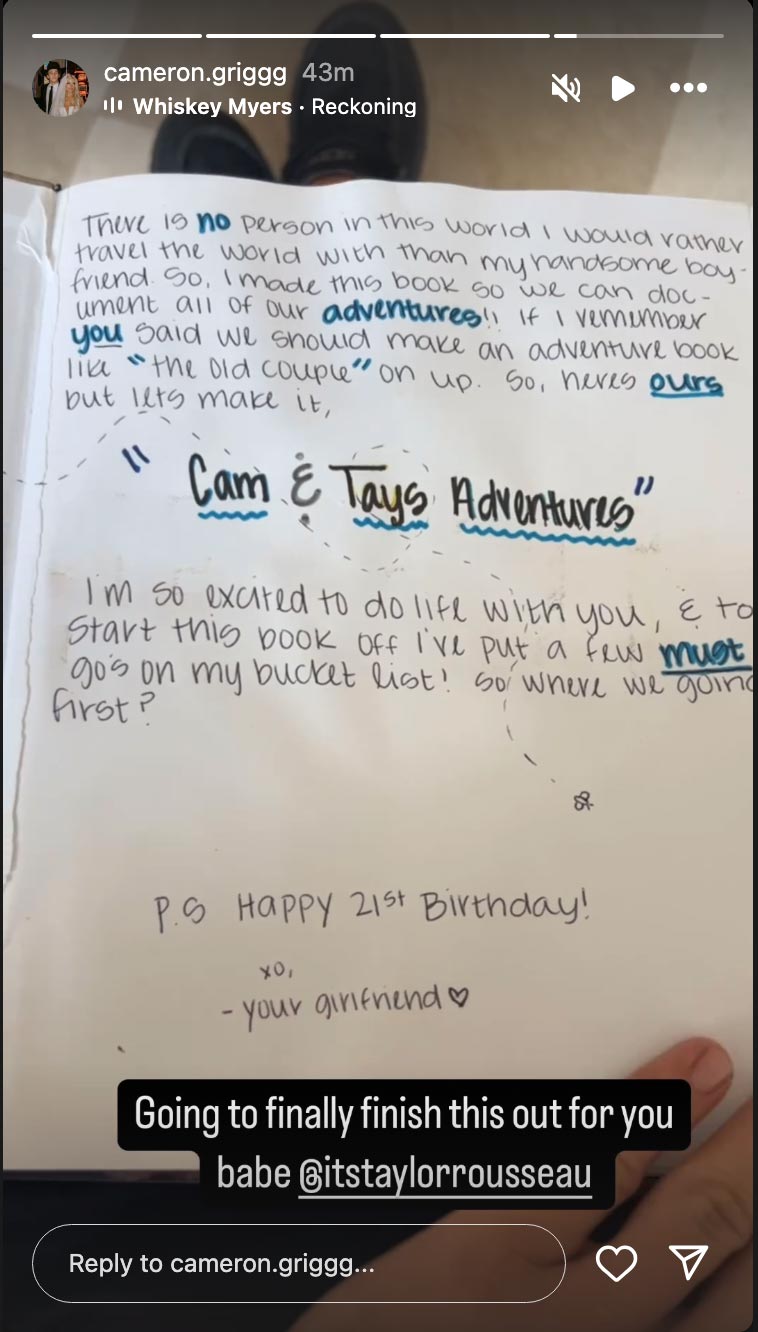 cameron.griggg 43m
Whiskey Myers · Reckoning
There is no person in this world I would rather
travel the world with than my handsome boy-
friend. So, I made this book so we can doc-
ument all of our adventures!! If I remember
you said we should make an adventure book
like "the old couple" on up. So, heres ours
but lets make it,
"Cam & Tays Adventures"
I'm so excited to do life with you, & to
start this book off I've put a few must
go's on my bucket list! So where we going
first?
P.S Happy 21st Birthday!
xo,
- your girlfriend ♡
Going to finally finish this out for you
babe @itstaylorrousseau
Reply to cameron.griggg...